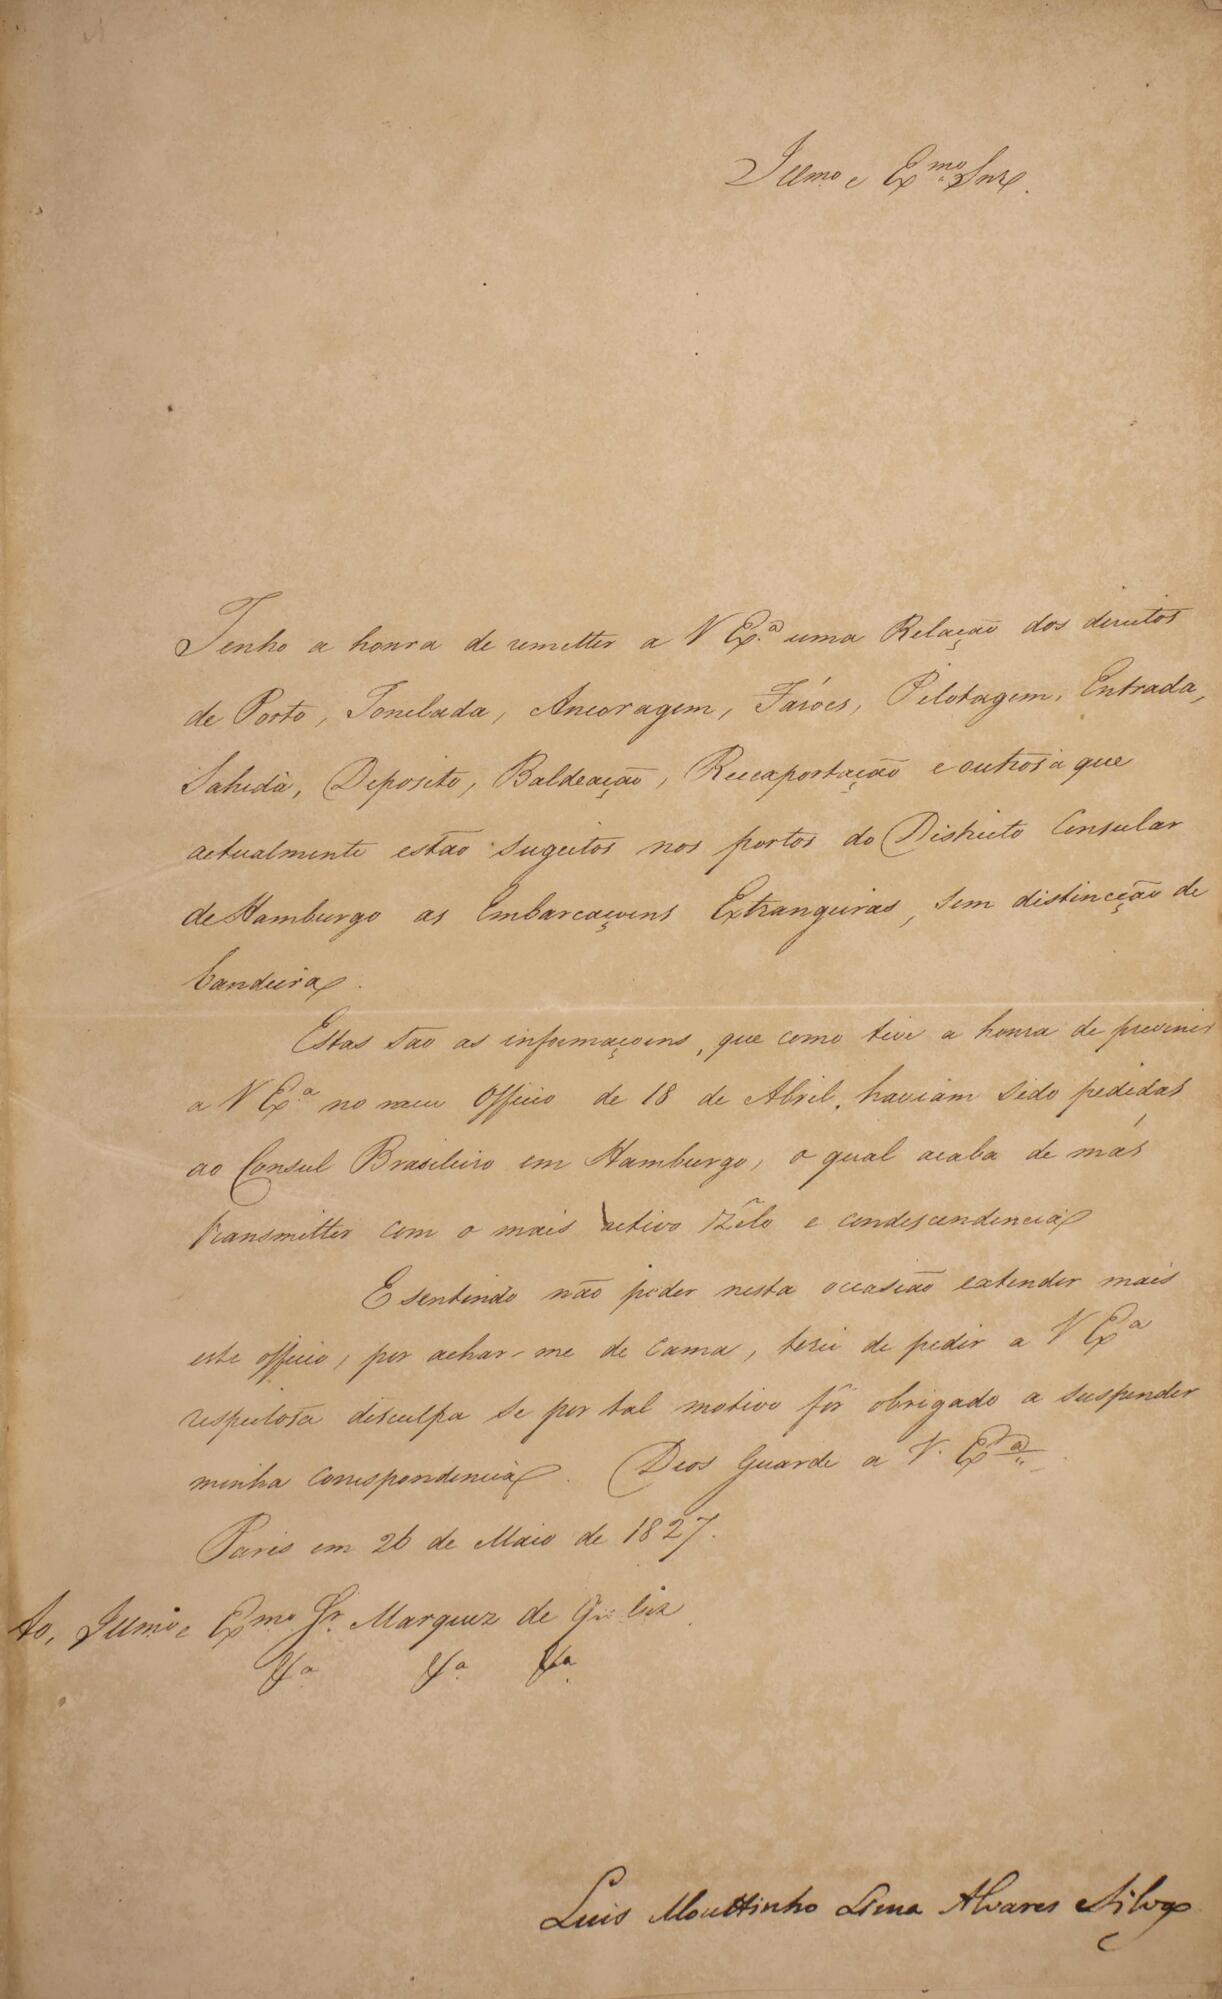 Illmo e Exmo Snr.
Tenho a honra de remetter a V Ex.ª uma Relação dos direitos
de Porto, Tonelada, Ancoragem, Faróes, Pilotagem, Entrada,
Sahida, Deposito, Baldeação, Reexportação e outros a que
actualmente estão sugeitos nos portos do Districto Consular
de Hamburgo as Embarcaçoens Extrangeiras, sem distincção de
bandeira.
Estas são as informaçoens, que como tive a honra de previnir
a V Ex.ª no meu Officio de 18 de Abril, haviam sido pedidas
ao Consul Brasileiro em Hamburgo, o qual acaba de mas
transmitter com o mais activo Zêlo e condescendencia
E sentindo não poder nesta occasião extender mais
este officio, por achar-me de cama, terei de pedir a V Exª
respeitosa disculpa se por tal motivo fôr obrigado a suspender
minha correspondencia. Deos Guarde a V. Exª
Paris em 26 de Maio de 1827.
Ao, Illmo e Exmo Sr. Marquez de Queluz
Luis Mouttinho Lima Alvares Silva